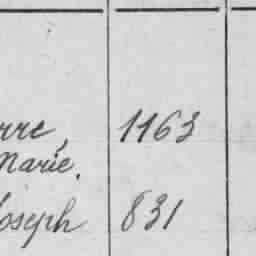 rre, 1163
Marie.
Joseph 831